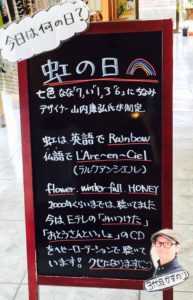 今日は何の日?
虹の日
七色 なな7,い1,3 6, にちなみ
デザイナー 山内康弘氏が制定
虹は、英語で Rainbow
仏語で L'Arc~en~Ciel
(ラルクアンシエル)
flower. winter fall. HONEY
2000年くらいまでは、聴いてました
今は、Eテレの「みいつけた」
「おとうさんといっしょ」のCD
をヘビーローテーションで聴いて
います!! クセになります
3代目かずのり